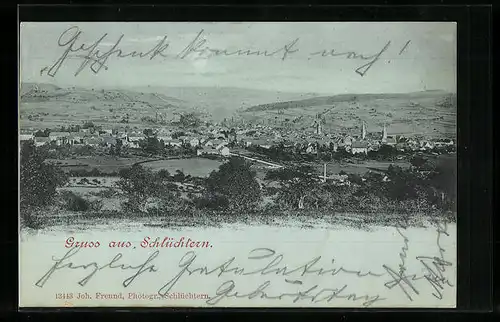 Geschenk kommt noch!
Gruss aus Schlüchtern.
Herzliche Gratulation
13443 Joh. Freund, Photogr., Schlüchtern.
Geburtstag